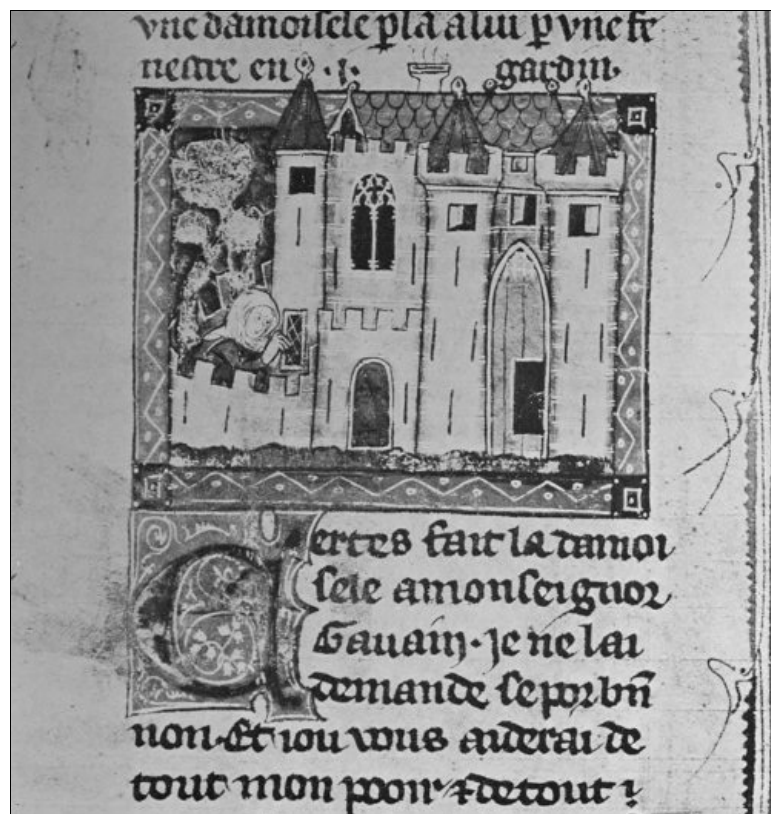 vne damoisele p la a lui p vne fe
nestre en .i. gardin.
Certes fait la damoi
sele a monseignor
Gauain. Je ne lai
demande se por bn̄
non. Et iou vous aiderai de
tout mon pooir ⁊ de tout